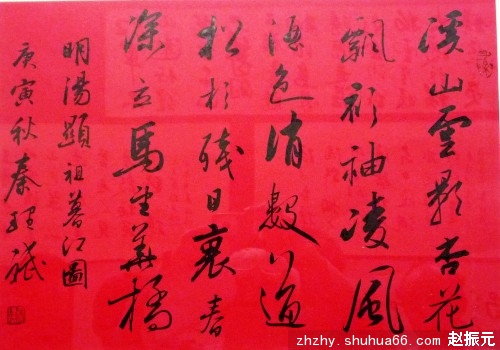 溪山雲影杏花
飄衫袖凌風
酒色消數道
松杉殘日裏春
深立馬望華橋
明湯顯祖暮江圖
庚寅秋秦
zhzhy.shuhua66.com 赵振元